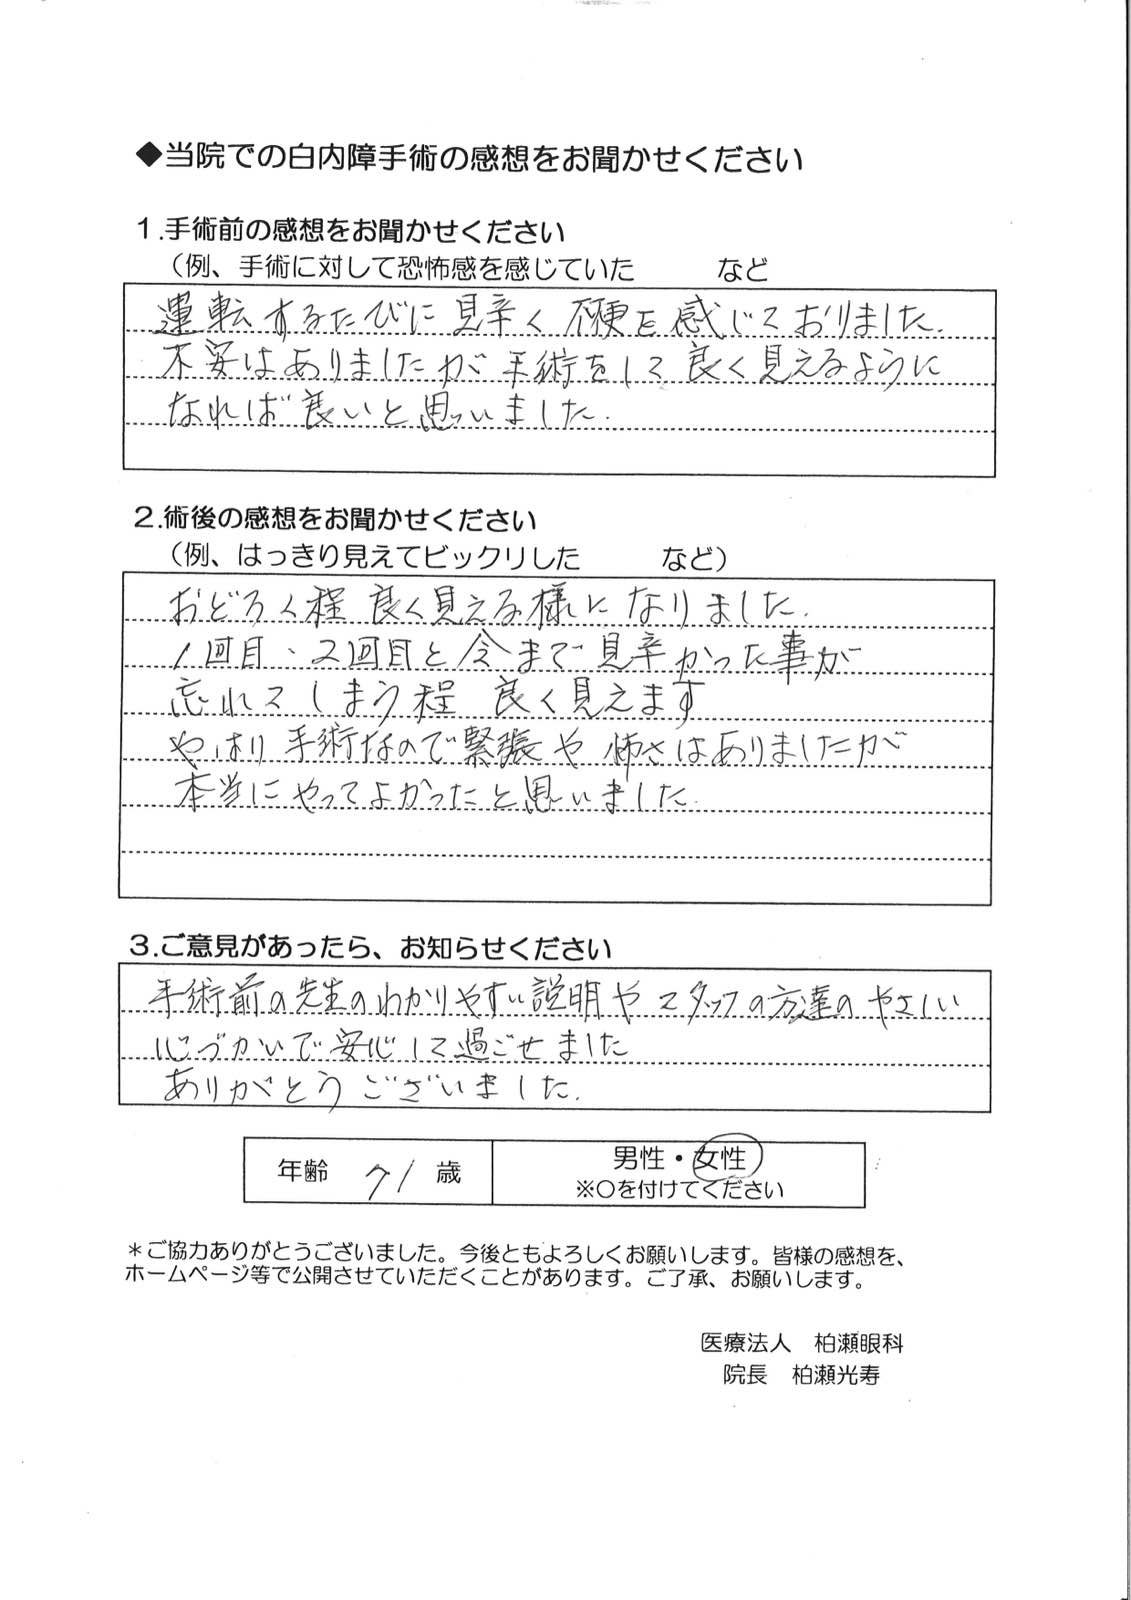 ◆当院での白内障手術の感想をお聞かせください
1.手術前の感想をお聞かせください
（例、手術に対して恐怖感を感じていた　　　など
運転するたびに見辛く不便を感じておりました.
不安はありましたが手術をして良く見えるように
なれば良いと思いました.
2.術後の感想をお聞かせください
（例、はっきり見えてビックリした　　　など）
おどろく程良く見える様になりました.
1回目・2回目と今まで見辛かった事が
忘れてしまう程良く見えます
やはり手術なので緊張や怖さはありましたが
本当にやってよかったと思いました.
3.ご意見があったら、お知らせください
手術前の先生のわかりやすい説明やスタッフの方達のやさしい
心づかいで安心して過ごせました
ありがとうございました.
年齢 71 歳　男性・女性
※○を付けてください
＊ご協力ありがとうございました。今後ともよろしくお願いします。皆様の感想を、
ホームページ等で公開させていただくことがあります。ご了承、お願いします。
医療法人　柏瀬眼科
院長　柏瀬光寿